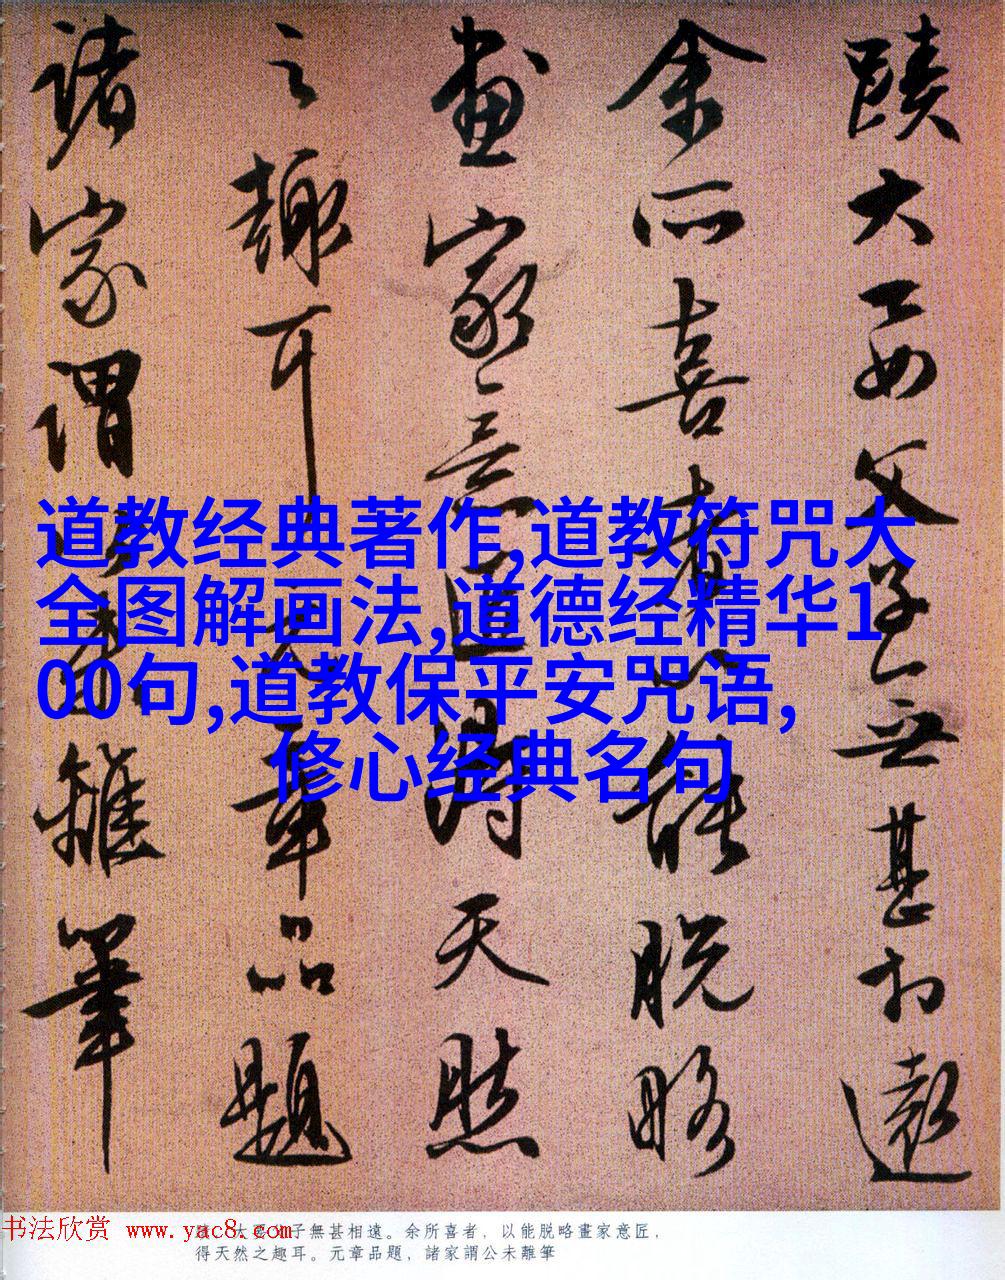 蹟大要父子無甚相遠
余所喜者以能脱略
畫家意匠得天然
之趣耳元章品題
諸家謂公未離筆
道教经典著作,道教符咒大
全图解画法,道德经精华1
00句,道教保平安咒语,
修心经典名句
书法欣赏 www.yac8.com
大要父子無甚相遠。余所喜者，以能脱略畫家意匠，
得天然之趣耳。元章品題，諸家謂公未離筆